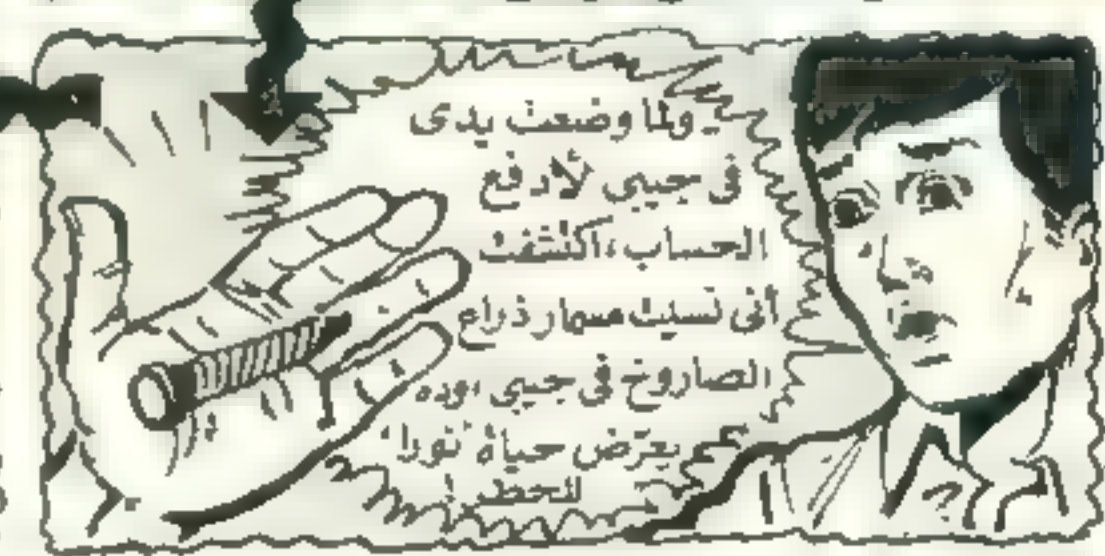 ولما وضعت يدى
فى جيبى لأدفع
الحساب، اكتشفت
أنى نسيت مسمار ذراع
الصاروخ فى جيبى، وده
يعرّض حياة "نورا"
للخطر!